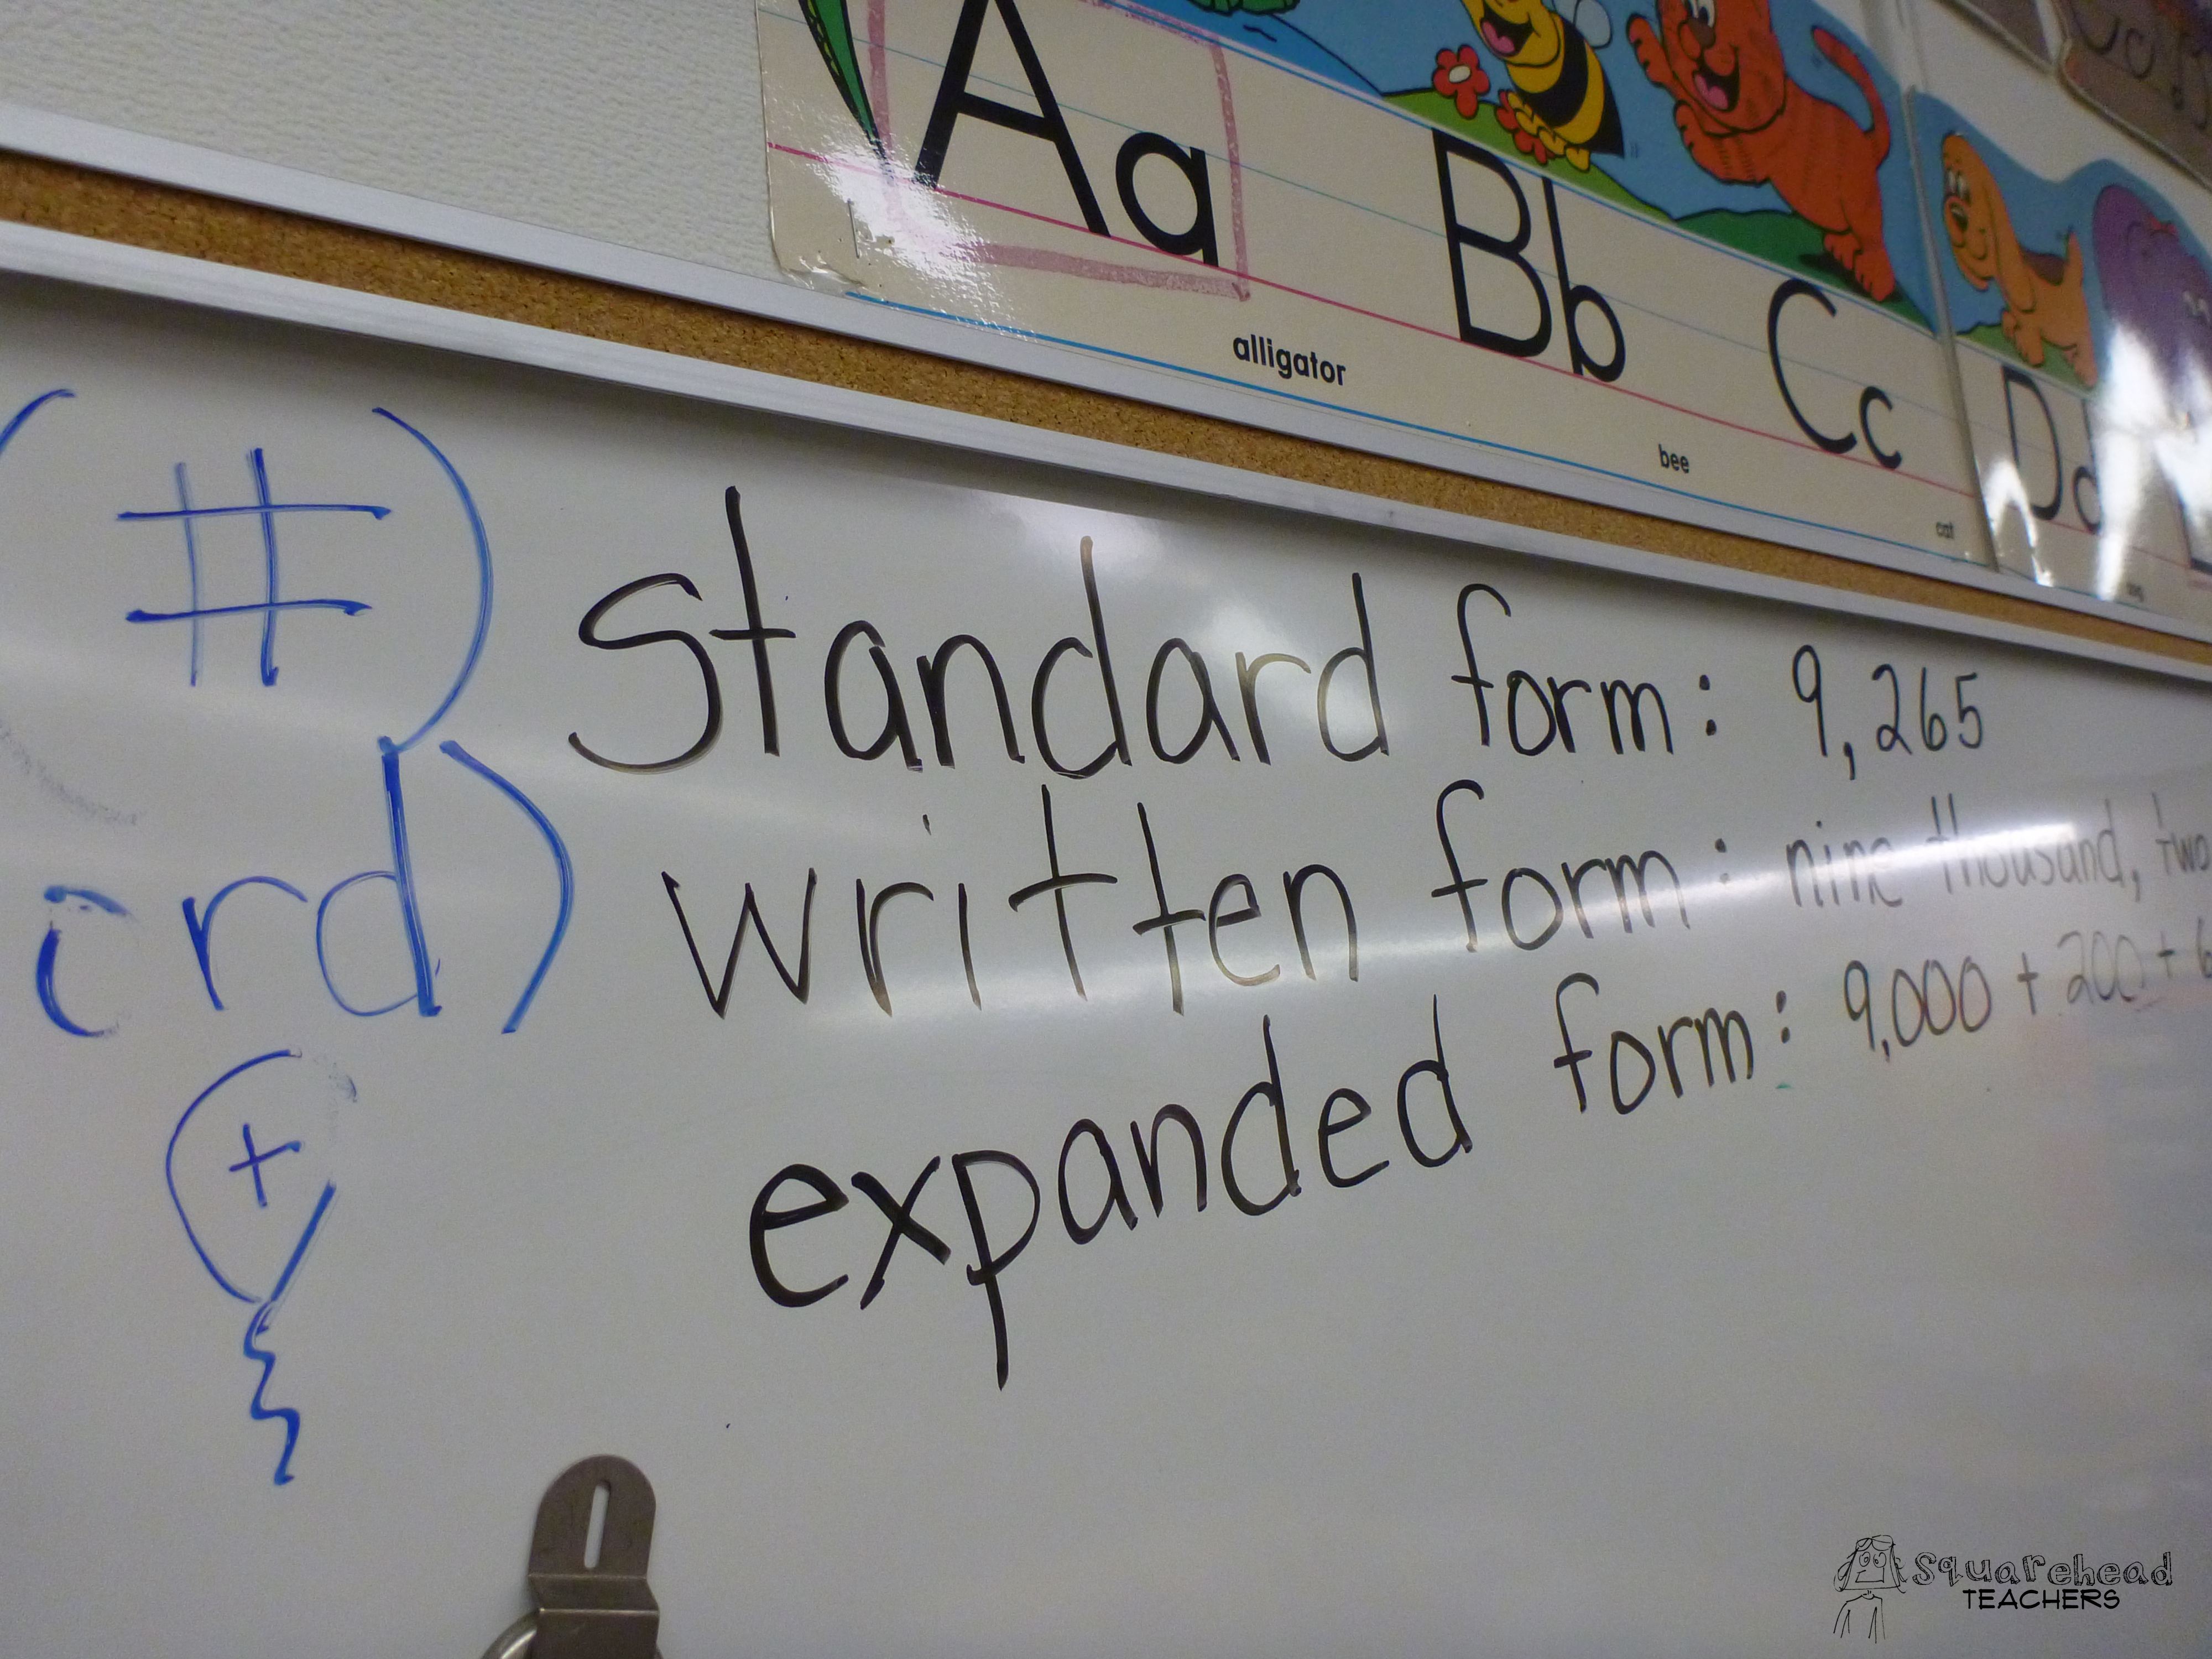 Aa Bb Cc Dd
alligator bee cat dog
(#) Standard form: 9,265
ord) written form: nine thousand, two
+ expanded form: 9,000 + 200 + 6
Squarehead
TEACHERS